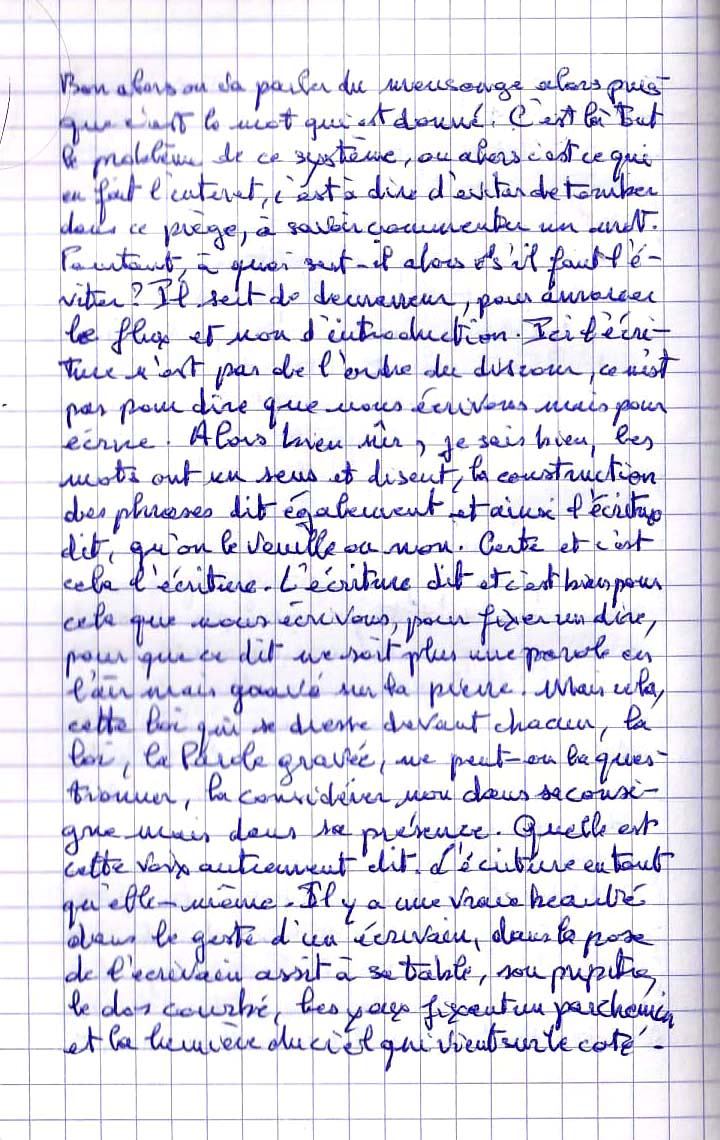 Bon alors on va parler du mensonge alors puis
que c'est le mot qui est donné. C'est là tout
le problème de ce système, ou alors c'est ce qui
en fait l'interet, c'est à dire d'eviter de tomber
dans ce piège, à savoir commenter un mot.
Pourtant, à quoi sert-il alors s'il faut l'é-
viter? Il sert de demarreur, pour amorcer
le flux et non d'introduction. Ici l'écri-
ture n'est pas de l'ordre du discour, ce n'est
pas pour dire que nous écrivons mais pour
écrire. Alors bien sûr, je sais bien, les
mots ont un sens et disent, la construction
des phrases dit également et ainsi l'écriture
dit, qu'on le veuille ou non. Certe et c'est
cela l'écriture. L'écriture dit et c'est bien pour
cela que nous écrivons, pour fixer un dire,
pour que ce dit ne soit plus une parole en
l'air mais gravé sur la pierre. Mais cela,
cette loi qui se dresse devant chacun, la
loi, la Parole gravée, ne peut-on la ques-
tionner, la considérer non dans sa consi-
gne mais dans sa présence. Quelle est
cette voix autrement dit. L'écriture en tant
qu'elle-même. Il y a une vraie beauté
dans le geste d'un écrivain, dans la pose
de l'ecrivain assit à sa table, son pupitre,
le dos courbé, les yeux fixant un parchemin
et la lumière du ciel qui vient sur le coté.